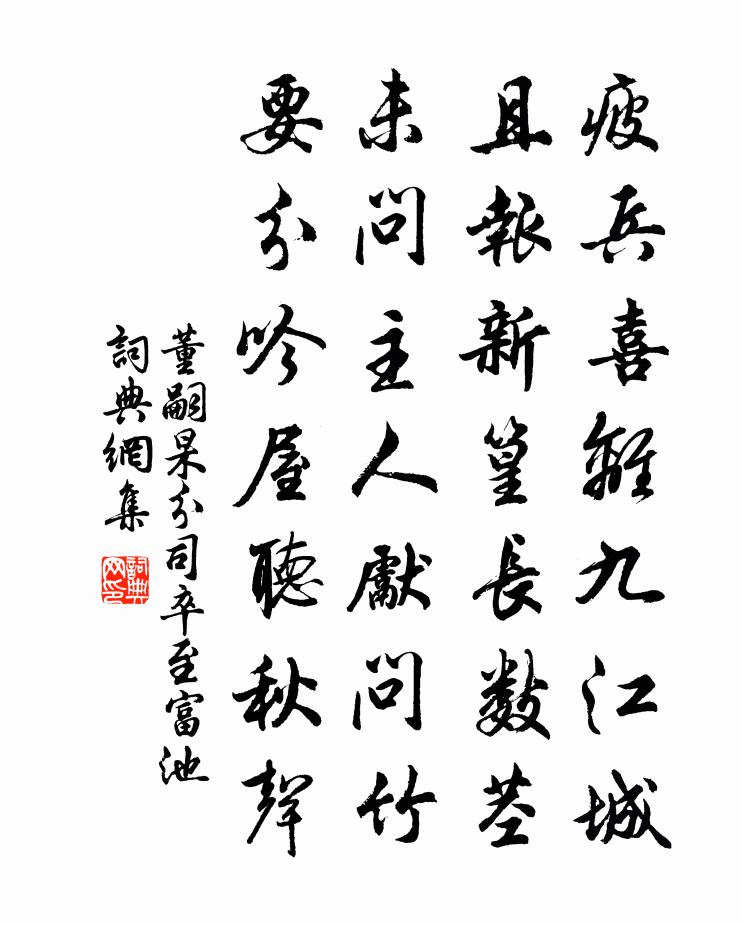 疲兵喜離九江城
且報新篁長數莖
未問主人獻問竹
要分吟屋聽秋聲
董嗣杲分司卒至富池
詞典網集
詞典网印